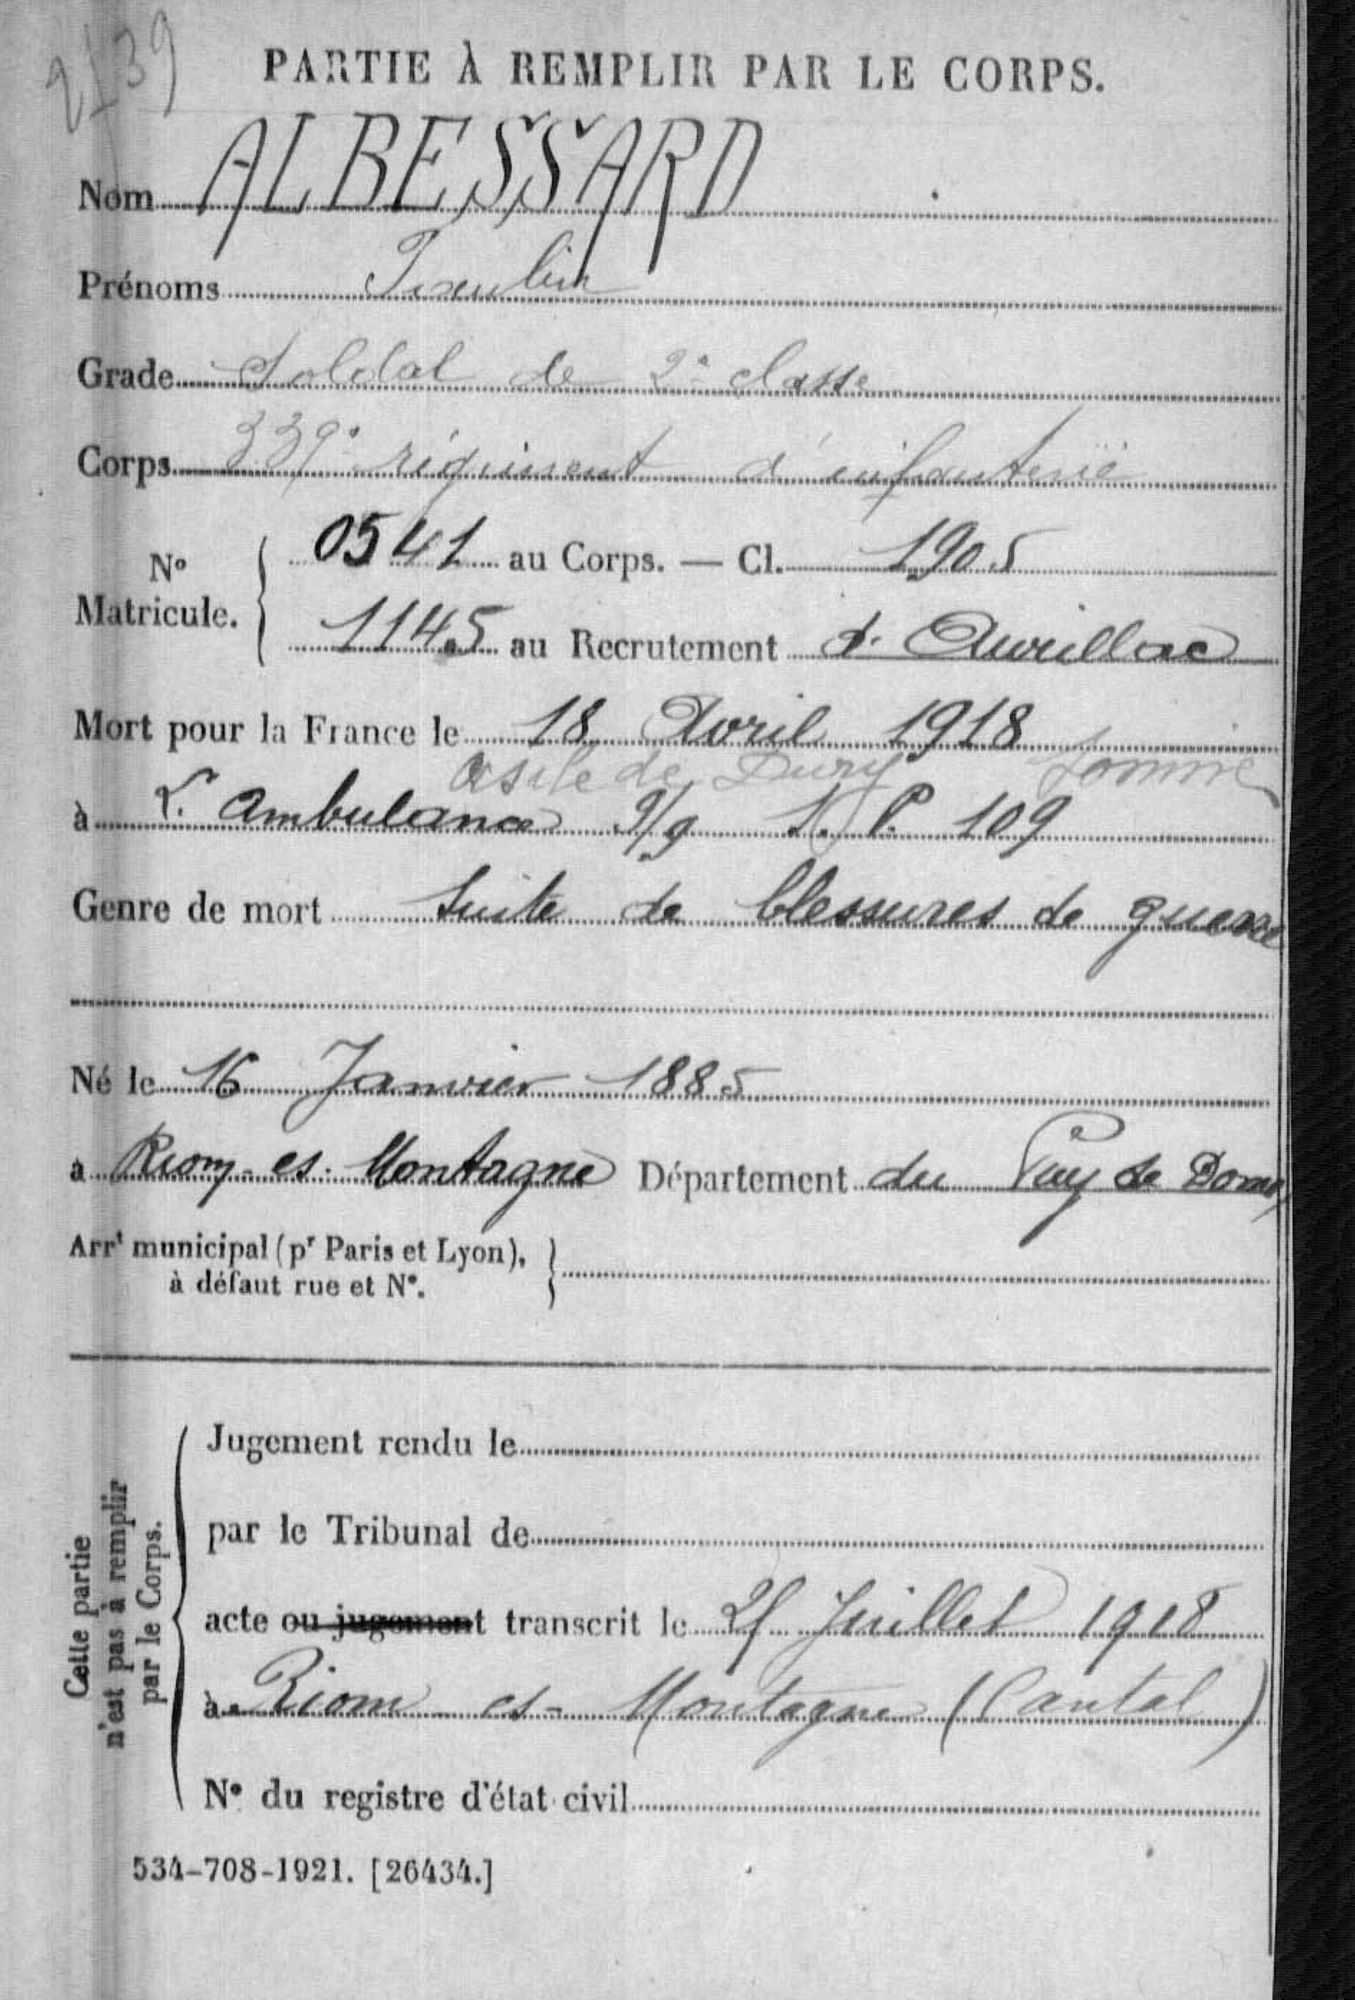 2139
PARTIE À REMPLIR PAR LE CORPS.
Nom ALBESSARD
Prénoms
Grade Soldat de 2e classe
Corps 339e régiment d'infanterie
No Matricule. { 0541 au Corps. — Cl. 1905
1145 au Recrutement d. Aurillac
Mort pour la France le 18 Avril 1918
asile de Dury Somme
à L'ambulance 9/9 S. P. 109
Genre de mort Suite de blessures de guerre
Né le 16 Janvier 1885
à Riom-es-Montagne Département du Puy de Dome
Arrt municipal (pr Paris et Lyon),
à défaut rue et No. }
Cette partie
n'est pas à remplir
par le Corps.
Jugement rendu le
par le Tribunal de
acte ou jugement transcrit le Juillet 1918
à Riom es-Montagne (Cantal)
No du registre d'état civil
534-708-1921. [26434.]